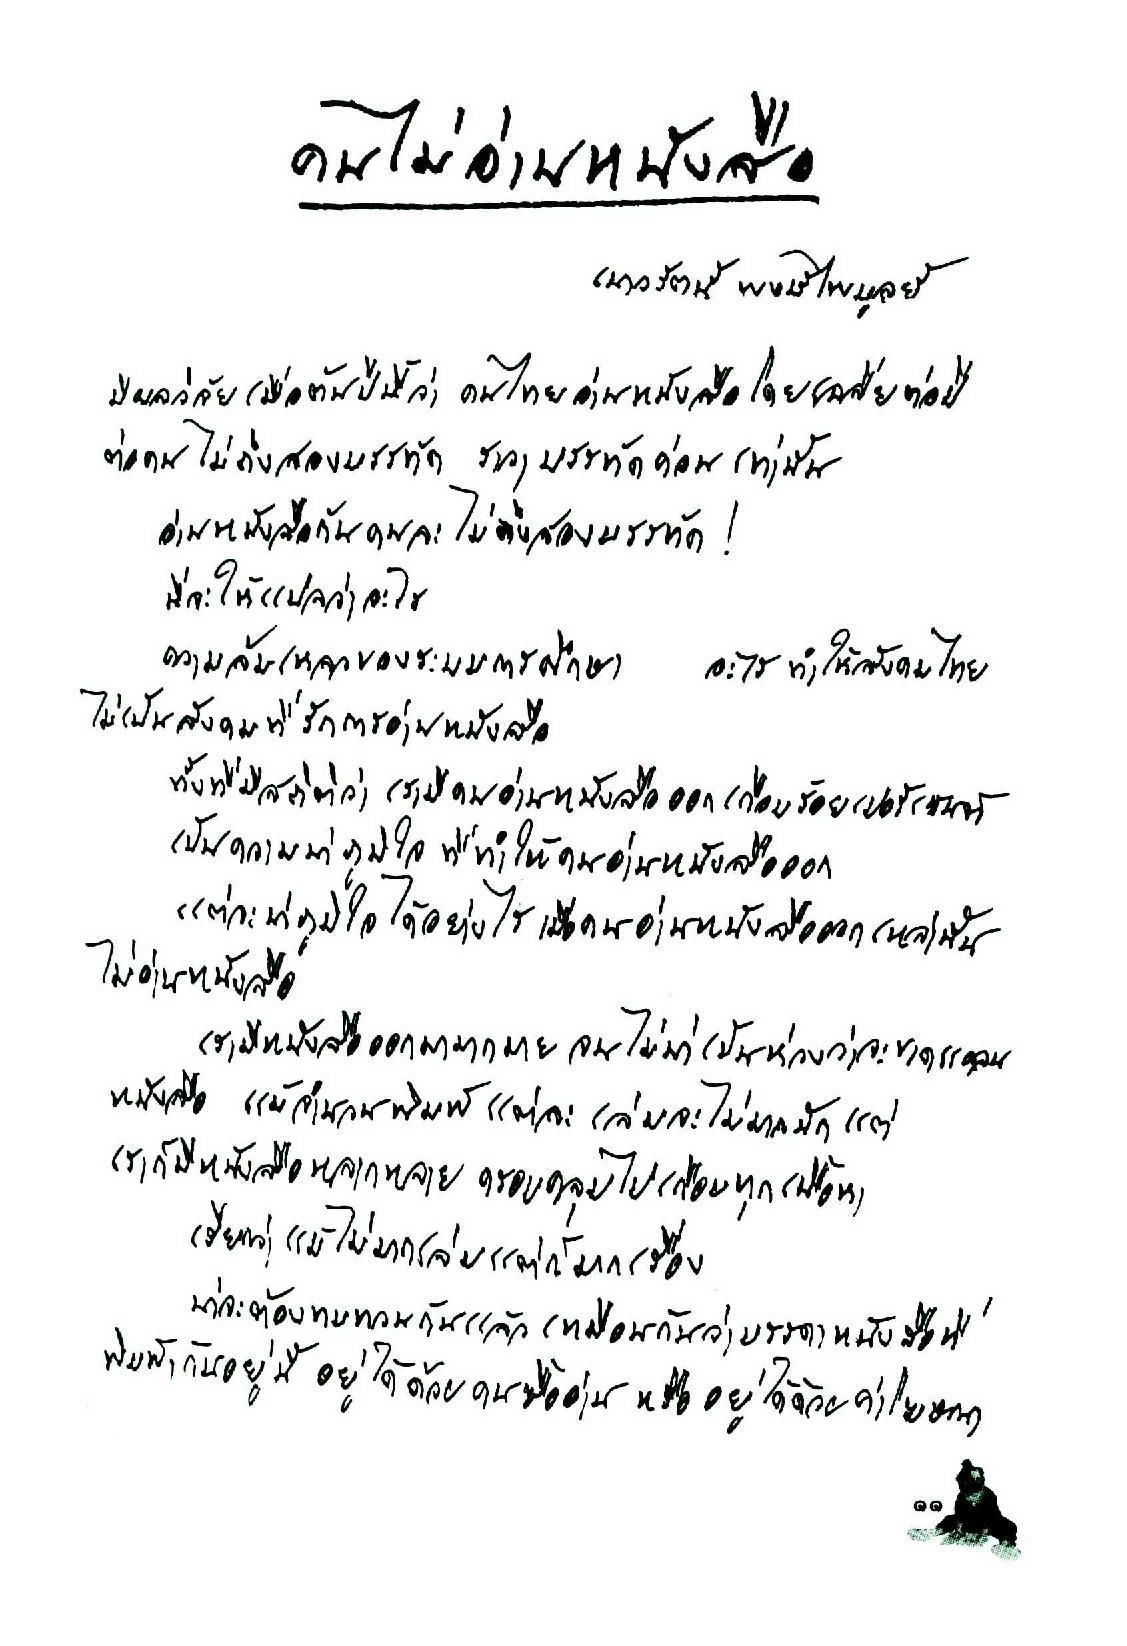 คนไม่อ่านหนังสือ
เนาวรัตน์ พงษ์ไพบูลย์
มีผลวิจัยเมื่อต้นปีนี้ว่า คนไทยอ่านหนังสือโดยเฉลี่ยต่อปี
ต่อคนไม่ถึงสองบรรทัด ราวบรรทัดค่อนเท่านั้น
อ่านหนังสือกันคนละไม่ถึงสองบรรทัด !
นี่จะให้แปลว่าอะไร
ความล้มเหลวของระบบการศึกษา อะไรทำให้สังคมไทย
ไม่เป็นสังคมที่รักการอ่านหนังสือ
ทั้งที่มีสถิติว่า เรามีคนอ่านหนังสือออกเกือบร้อยเปอร์เซนต์
เป็นความน่าภูมิใจ ที่ทำให้คนอ่านหนังสือออก
แต่จะน่าภูมิใจได้อย่างไร เมื่อคนอ่านหนังสือออกเหล่านั้น
ไม่อ่านหนังสือ
เรามีหนังสือออกมามากมาย จนไม่น่าเป็นห่วงว่าจะขาดแคลน
หนังสือ แม้จำนวนพิมพ์แต่ละเล่มจะไม่มากนัก แต่
เราก็มีหนังสือหลากหลาย ครอบคลุมไปเกือบทุกเนื้อหา
เรียกว่าแม้ไม่มากเล่มแต่ก็มากเรื่อง
น่าจะต้องทบทวนกันแล้ว เหมือนกันว่าบรรดาหนังสือที่
พิมพ์กันอยู่นี้ อยู่ได้ด้วยคนซื้ออ่าน หรืออยู่ได้ด้วยค่าโฆษณา
๑๑